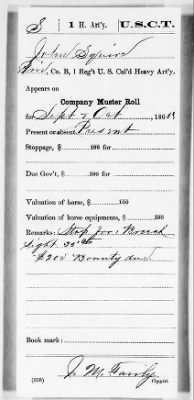 S | 1 | H. Art'y. | U.S.C.T.
John Squires
Pvt., Co. B, 1 Reg't U. S. Col'd Heavy Art'y.
Appears on
Company Muster Roll
for Sept & Oct, 186
Present or absent Present
Stoppage, $ 100 for
Due Gov't, $ 100 for
Valuation of horse, $ 100
Valuation of horse equipments, $ 100
Remarks: Stop for 1 Breech
Sight 35
$200 Bounty due.
Book mark:
(358)
Copyist.